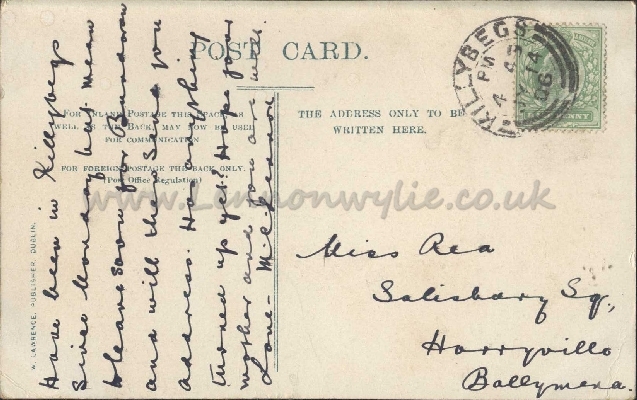 POST CARD.
FOR INLAND POSTAGE THIS SPACE, AS
WELL AS THE BACK, MAY NOW BE USED
FOR COMMUNICATION
FOR FOREIGN POSTAGE THE BACK ONLY.
(Post Office Regulation)
THE ADDRESS ONLY TO BE
WRITTEN HERE.
KILLYBEGS
W. LAWRENCE, PUBLISHER, DUBLIN.
www.Lennonwylie.co.uk
Have been in Killybegs
since Monday half. mean
to leave soon for
and will then send you
address. Has anything
turned up yet? Hope your
mother and you are well.
Love -
Miss Rea
Salisbury Sq,
Harryville
Ballymena.